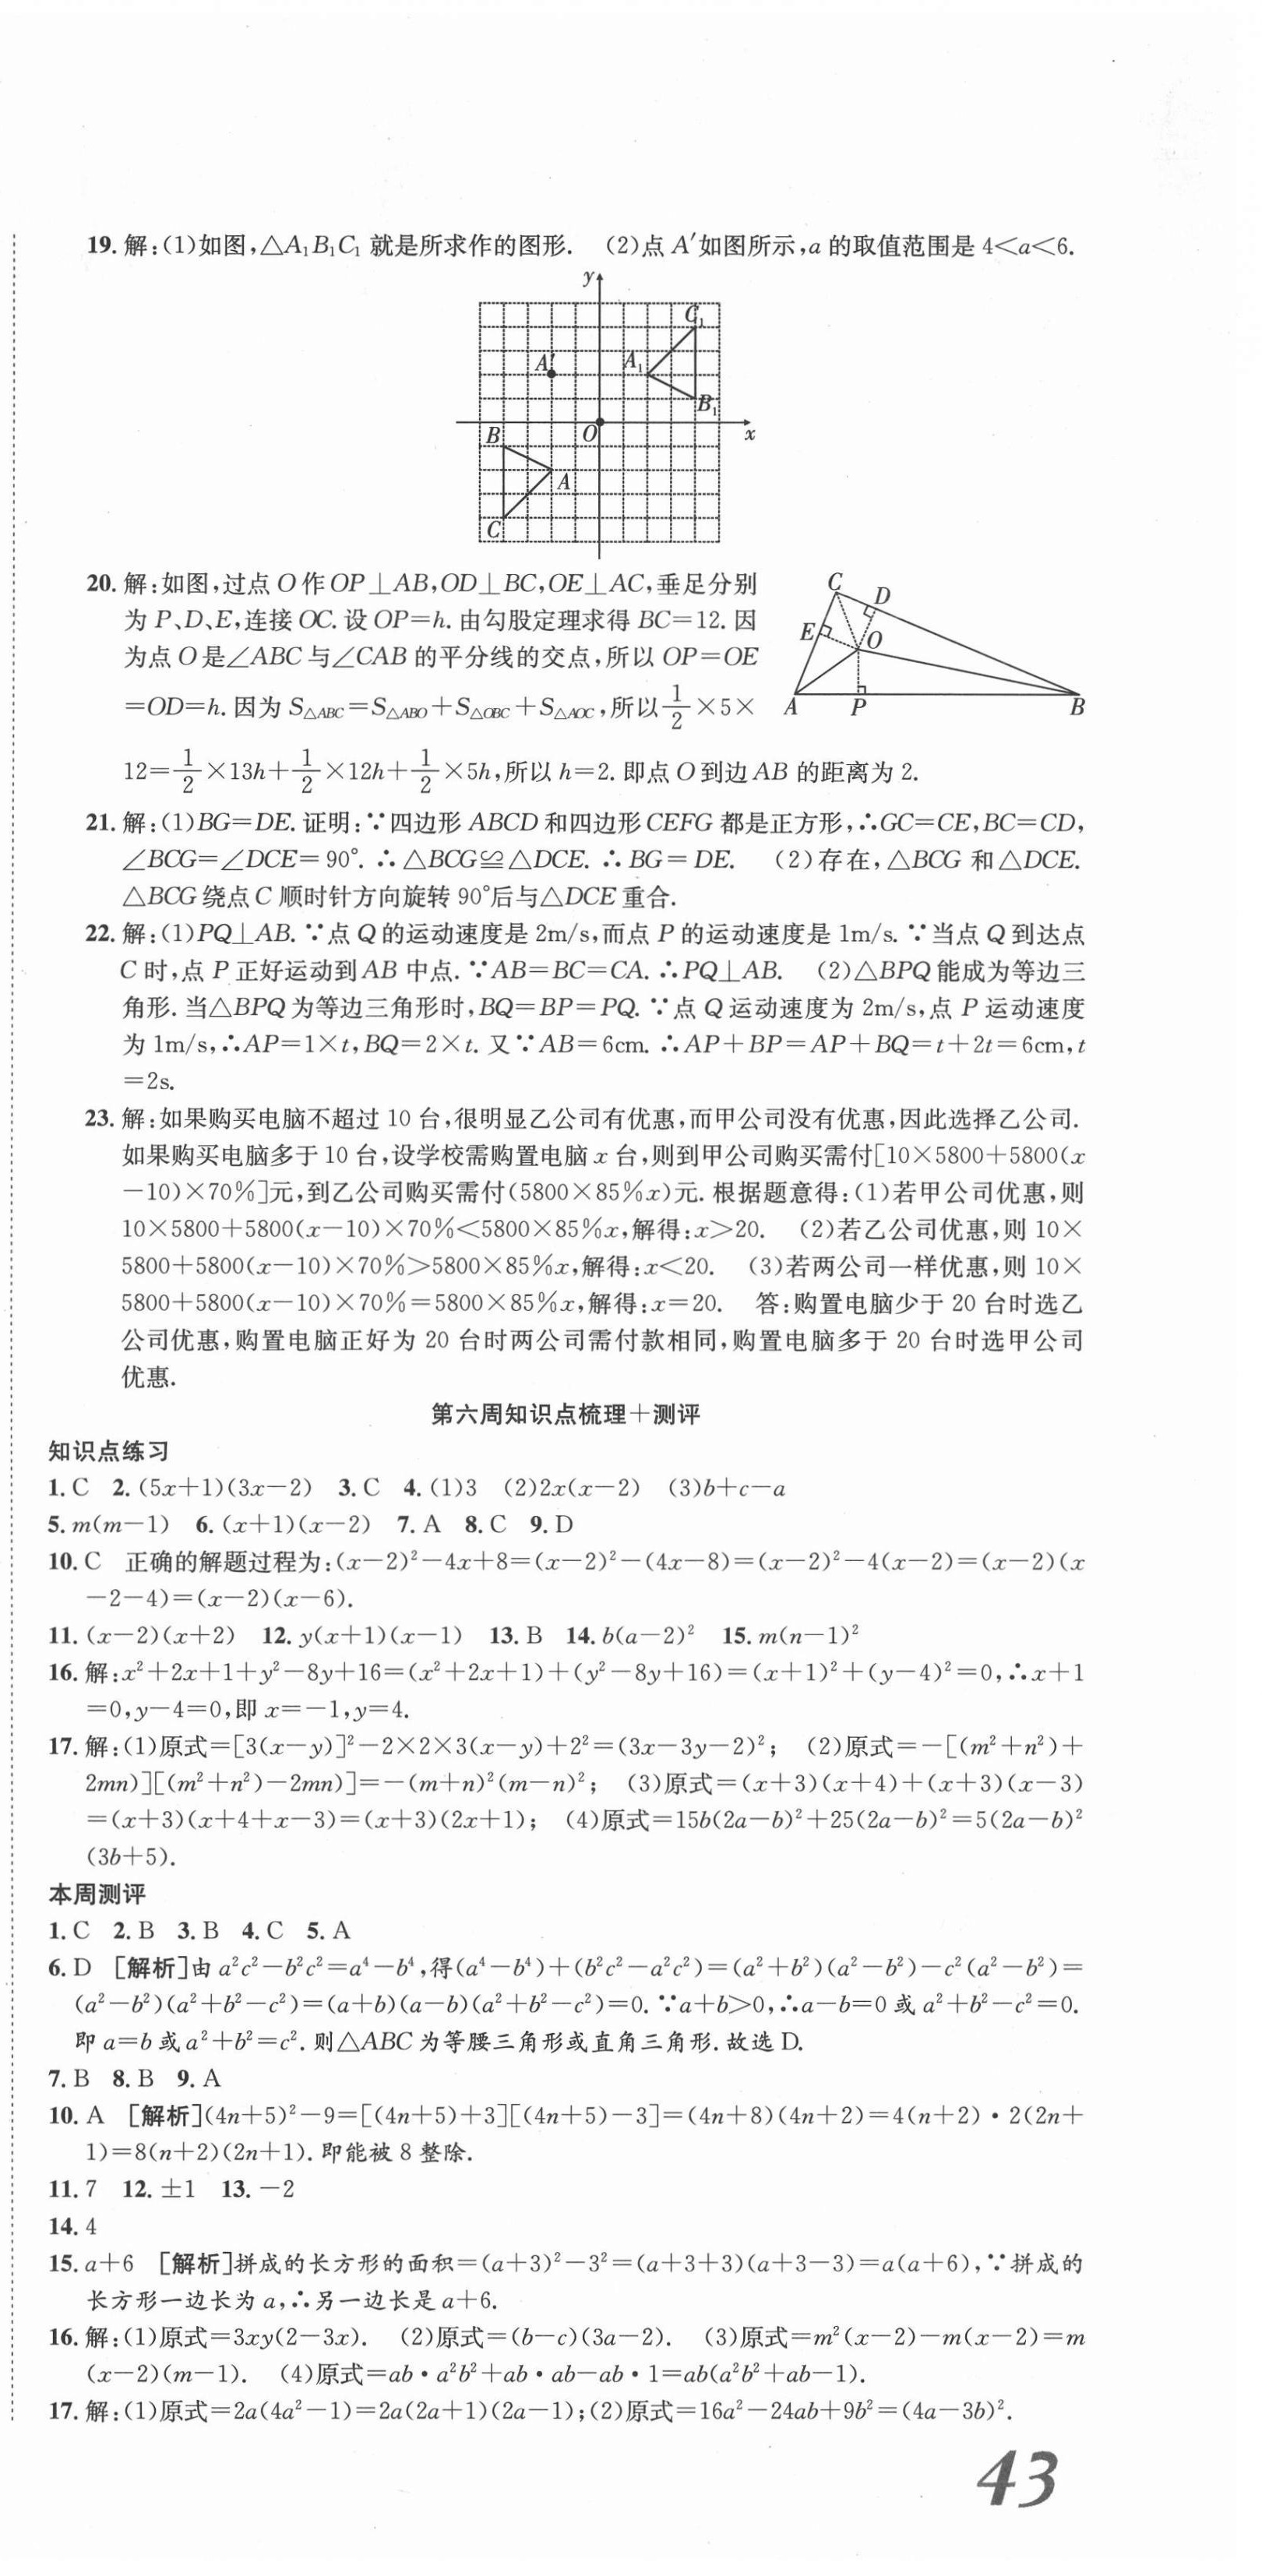 19. 解:(1)如图,△A₁B₁C₁ 就是所求作的图形. (2)点 A′如图所示,a 的取值范围是 4<a<6.
y
C₁
A′
A₁
B₁
B
O
x
A
C
20. 解:如图,过点 O 作 OP⊥AB,OD⊥BC,OE⊥AC,垂足分别
为 P、D、E,连接 OC. 设 OP=h. 由勾股定理求得 BC=12. 因
为点 O 是∠ABC 与∠CAB 的平分线的交点,所以 OP=OE
=OD=h. 因为 S△ABC=S△ABO+S△OBC+S△AOC,所以 1/2 ×5×
12= 1/2 ×13h+ 1/2 ×12h+ 1/2 ×5h,所以 h=2. 即点 O 到边 AB 的距离为 2.
C
D
E
O
A
P
B
21. 解:(1)BG=DE. 证明:∵四边形 ABCD 和四边形 CEFG 都是正方形,∴GC=CE,BC=CD,
∠BCG=∠DCE=90°. ∴△BCG≌△DCE. ∴BG=DE. (2)存在,△BCG 和△DCE.
△BCG 绕点 C 顺时针方向旋转 90°后与△DCE 重合.
22. 解:(1)PQ⊥AB. ∵点 Q 的运动速度是 2m/s,而点 P 的运动速度是 1m/s. ∵当点 Q 到达点
C 时,点 P 正好运动到 AB 中点. ∵AB=BC=CA. ∴PQ⊥AB. (2)△BPQ 能成为等边三
角形. 当△BPQ 为等边三角形时,BQ=BP=PQ. ∵点 Q 运动速度为 2m/s,点 P 运动速度
为 1m/s,∴AP=1×t,BQ=2×t. 又∵AB=6cm. ∴AP+BP=AP+BQ=t+2t=6cm,t
=2s.
23. 解:如果购买电脑不超过 10 台,很明显乙公司有优惠,而甲公司没有优惠,因此选择乙公司.
如果购买电脑多于 10 台,设学校需购置电脑 x 台,则到甲公司购买需付[10×5800+5800(x
-10)×70%]元,到乙公司购买需付(5800×85%x)元. 根据题意得:(1)若甲公司优惠,则
10×5800+5800(x-10)×70%<5800×85%x,解得:x>20. (2)若乙公司优惠,则 10×
5800+5800(x-10)×70%>5800×85%x,解得:x<20. (3)若两公司一样优惠,则 10×
5800+5800(x-10)×70%=5800×85%x,解得:x=20. 答:购置电脑少于 20 台时选乙
公司优惠,购置电脑正好为 20 台时两公司需付款相同,购置电脑多于 20 台时选甲公司
优惠.
第六周知识点梳理+测评
知识点练习
1. C 2. (5x+1)(3x-2) 3. C 4. (1)3 (2)2x(x-2) (3)b+c-a
5. m(m-1) 6. (x+1)(x-2) 7. A 8. C 9. D
10. C 正确的解题过程为:(x-2)²-4x+8=(x-2)²-(4x-8)=(x-2)²-4(x-2)=(x-2)(x
-2-4)=(x-2)(x-6).
11. (x-2)(x+2) 12. y(x+1)(x-1) 13. B 14. b(a-2)² 15. m(n-1)²
16. 解:x²+2x+1+y²-8y+16=(x²+2x+1)+(y²-8y+16)=(x+1)²+(y-4)²=0,∴x+1
=0,y-4=0,即 x=-1,y=4.
17. 解:(1)原式=[3(x-y)]²-2×2×3(x-y)+2²=(3x-3y-2)²; (2)原式=-[(m²+n²)+
2mn)][(m²+n²)-2mn)]=-(m+n)²(m-n)²; (3)原式=(x+3)(x+4)+(x+3)(x-3)
=(x+3)(x+4+x-3)=(x+3)(2x+1); (4)原式=15b(2a-b)²+25(2a-b)²=5(2a-b)²
(3b+5).
本周测评
1. C 2. B 3. B 4. C 5. A
6. D [解析]由 a²c²-b²c²=a⁴-b⁴,得(a⁴-b⁴)+(b²c²-a²c²)=(a²+b²)(a²-b²)-c²(a²-b²)=
(a²-b²)(a²+b²-c²)=(a+b)(a-b)(a²+b²-c²)=0. ∵a+b>0,∴a-b=0 或 a²+b²-c²=0.
即 a=b 或 a²+b²=c². 则△ABC 为等腰三角形或直角三角形. 故选 D.
7. B 8. B 9. A
10. A [解析](4n+5)²-9=[(4n+5)+3][(4n+5)-3]=(4n+8)(4n+2)=4(n+2)·2(2n+
1)=8(n+2)(2n+1). 即能被 8 整除.
11. 7 12. ±1 13. -2
14. 4
15. a+6 [解析]拼成的长方形的面积=(a+3)²-3²=(a+3+3)(a+3-3)=a(a+6),∵拼成的
长方形一边长为 a,∴另一边长是 a+6.
16. 解:(1)原式=3xy(2-3x). (2)原式=(b-c)(3a-2). (3)原式=m²(x-2)-m(x-2)=m
(x-2)(m-1). (4)原式=ab·a²b²+ab·ab-ab·1=ab(a²b²+ab-1).
17. 解:(1)原式=2a(4a²-1)=2a(2a+1)(2a-1);(2)原式=16a²-24ab+9b²=(4a-3b)².
43